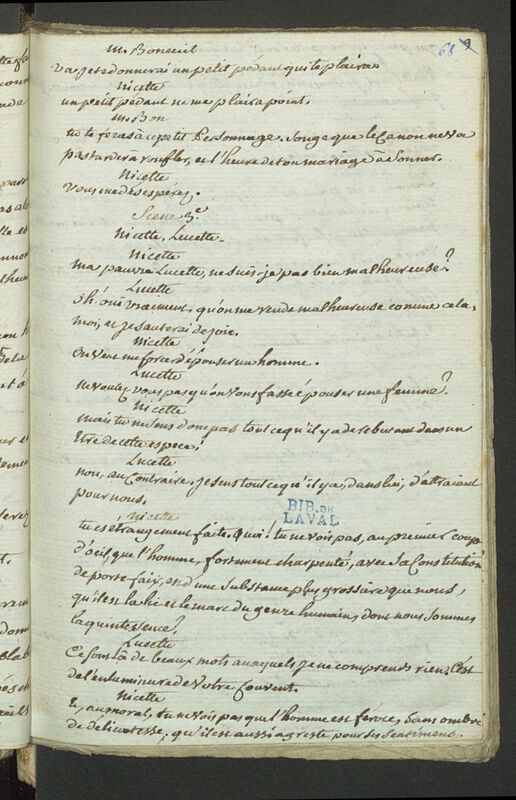 68 9
M. Boneuil
Va, je te donnerai un petit pédant qui te plaira.
Nicette
un petit pédant ne me plaira point.
M. Bon
tu te feras à ce petit Personnage. Songe que le Canon ne va
pas tarder à ronfler, et l'heure de ton mariage à Sonner.
Nicette
Vous me désespérez.
Scene 3.e
Nicette, Lucette.
Nicette
ma pauvre Lucette, ne suis-je pas bien malheureuse?
Lucette
oh! oui vraiment. qu'on me rende malheureuse comme cela,
moi, et je sauterai de joie.
Nicette
On veut me forcer d'épouser un homme.
Lucette
ne voulez-vous pas qu'on vous fasse épouser une femme?
Nicette
mais tu ne sens donc pas tout ce qu'il y a de rebutant dans un
Etre de cette espece!
Lucette
non, au Contraire. je sens tout ce qu'il y a, dans lui, d'attraiant
pour nous.
Nicette
tu es étrangement faite. Quoi! tu ne vois pas, au premier coup
d'oeil, que l'homme, fortement charpenté, avec sa Constitution
de porte faix, est d'une Substance plus grossiere que nous,
qu'il est la lie et le marc du genre humain, dont nous sommes
la quintessence?
Lucette
Ce sont là de beaux mots auxquels je ne comprends rien. C'est
de l'enluminure de Votre Couvent.
Nicette
Et, au moral, tu ne vois pas que l'homme est féroce, Sans ombre
de délicatesse; qu'il est aussi agreste pour les Sentimens
BIB. DE
LAVAL